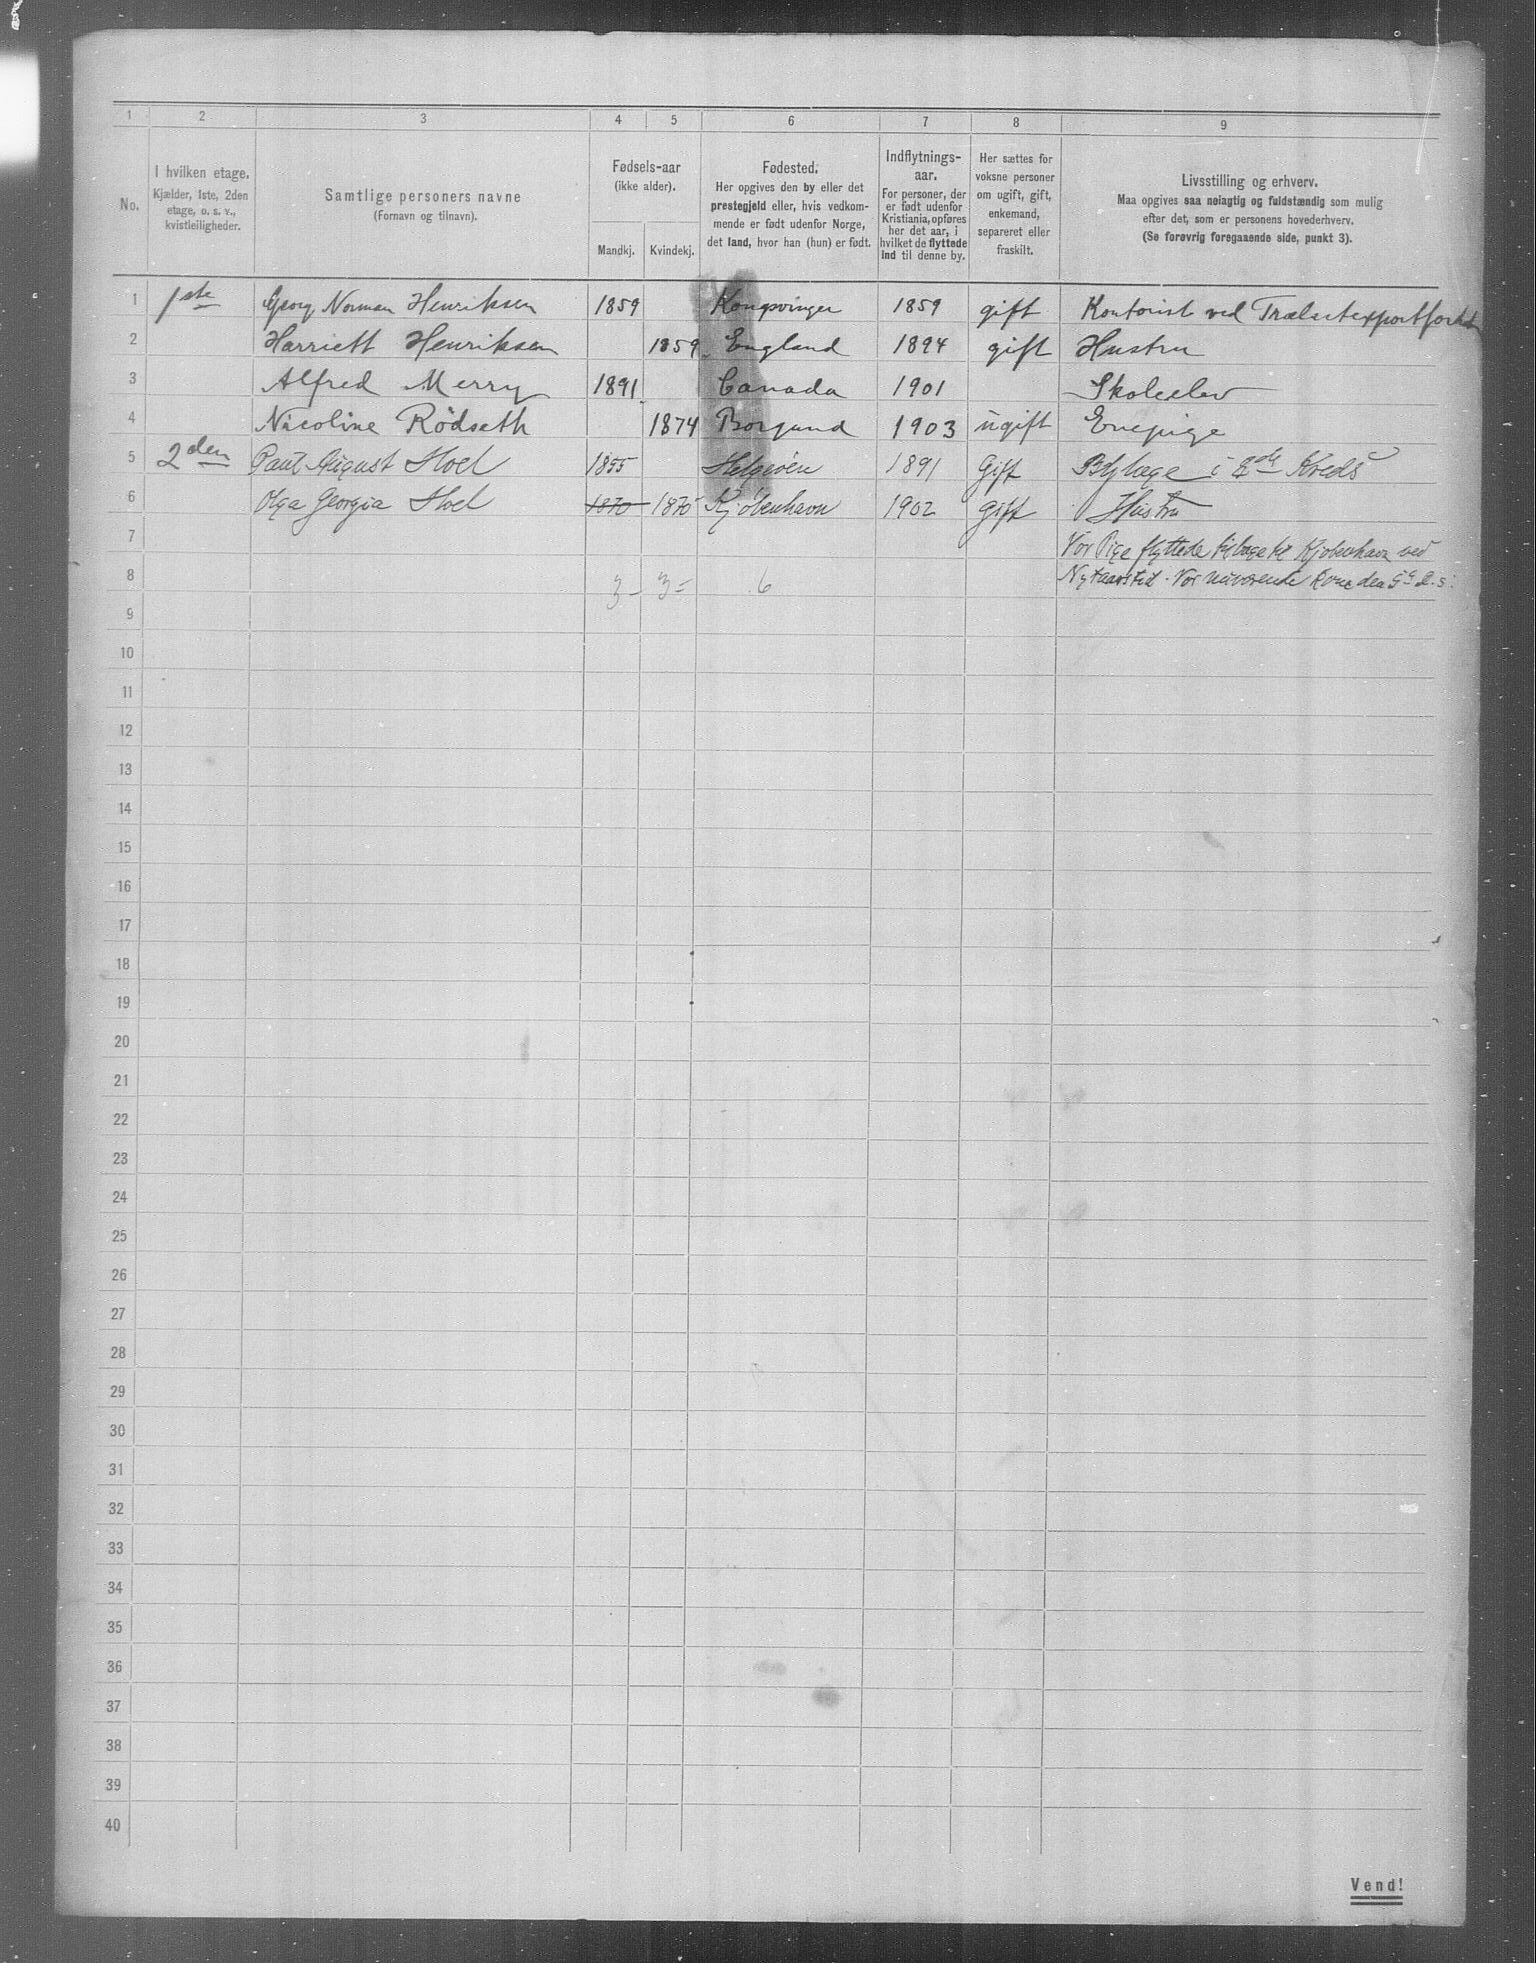 1 2 3 4 5 6 7 8 9
No.
I hvilken etage.
Kjælder, 1ste, 2den
etage, o. s. v.,
kvistleiligheder.
Samtlige personers navne
(Fornavn og tilnavn).
Fødsels-aar
(ikke alder).
Mandkj. Kvindekj.
Fødested.
Her opgives den by eller det
prestegjeld eller, hvis vedkom-
mende er født udenfor Norge,
det land, hvor han (hun) er født.
Indflytnings-
aar.
For personer, der
er født udenfor
Kristiania, opføres
her det aar, i
hvilket de flyttede
ind til denne by.
Her sættes for
voksne personer
om ugift, gift,
enkemand,
separeret eller
fraskilt.
Livsstilling og erhverv.
Maa opgives saa nøiagtig og fuldstændig som mulig
efter det, som er personens hovederhverv.
(Se forøvrig foregaaende side, punkt 3).
1 1ste Georg Norman Henriksen 1859 Kongsvinger 1859 gift Kontorist ved
2 Harriett Henriksen 1859 England 1894 gift Hustru
3 Alfred Merry 1891 Canada 1901 Skoleelev
4 Nicoline Rödseth 1874 Borgund 1903 ugift Enepige
5 2den Paul August Hoel 1855 1891 Gift i Kreds
6 Olga Georgia Hoel 1870 1870 Kjøbenhavn 1902 Gift Hustru
7 Vor Pige flyttede tilbage til Kjøbenhavn ved
8 3 - 3 = 6 Nytaarstid. Vor nuværende den
9
10
11
12
13
14
15
16
17
18
19
20
21
22
23
24
25
26
27
28
29
30
31
32
33
34
35
36
37
38
39
40
Vend!